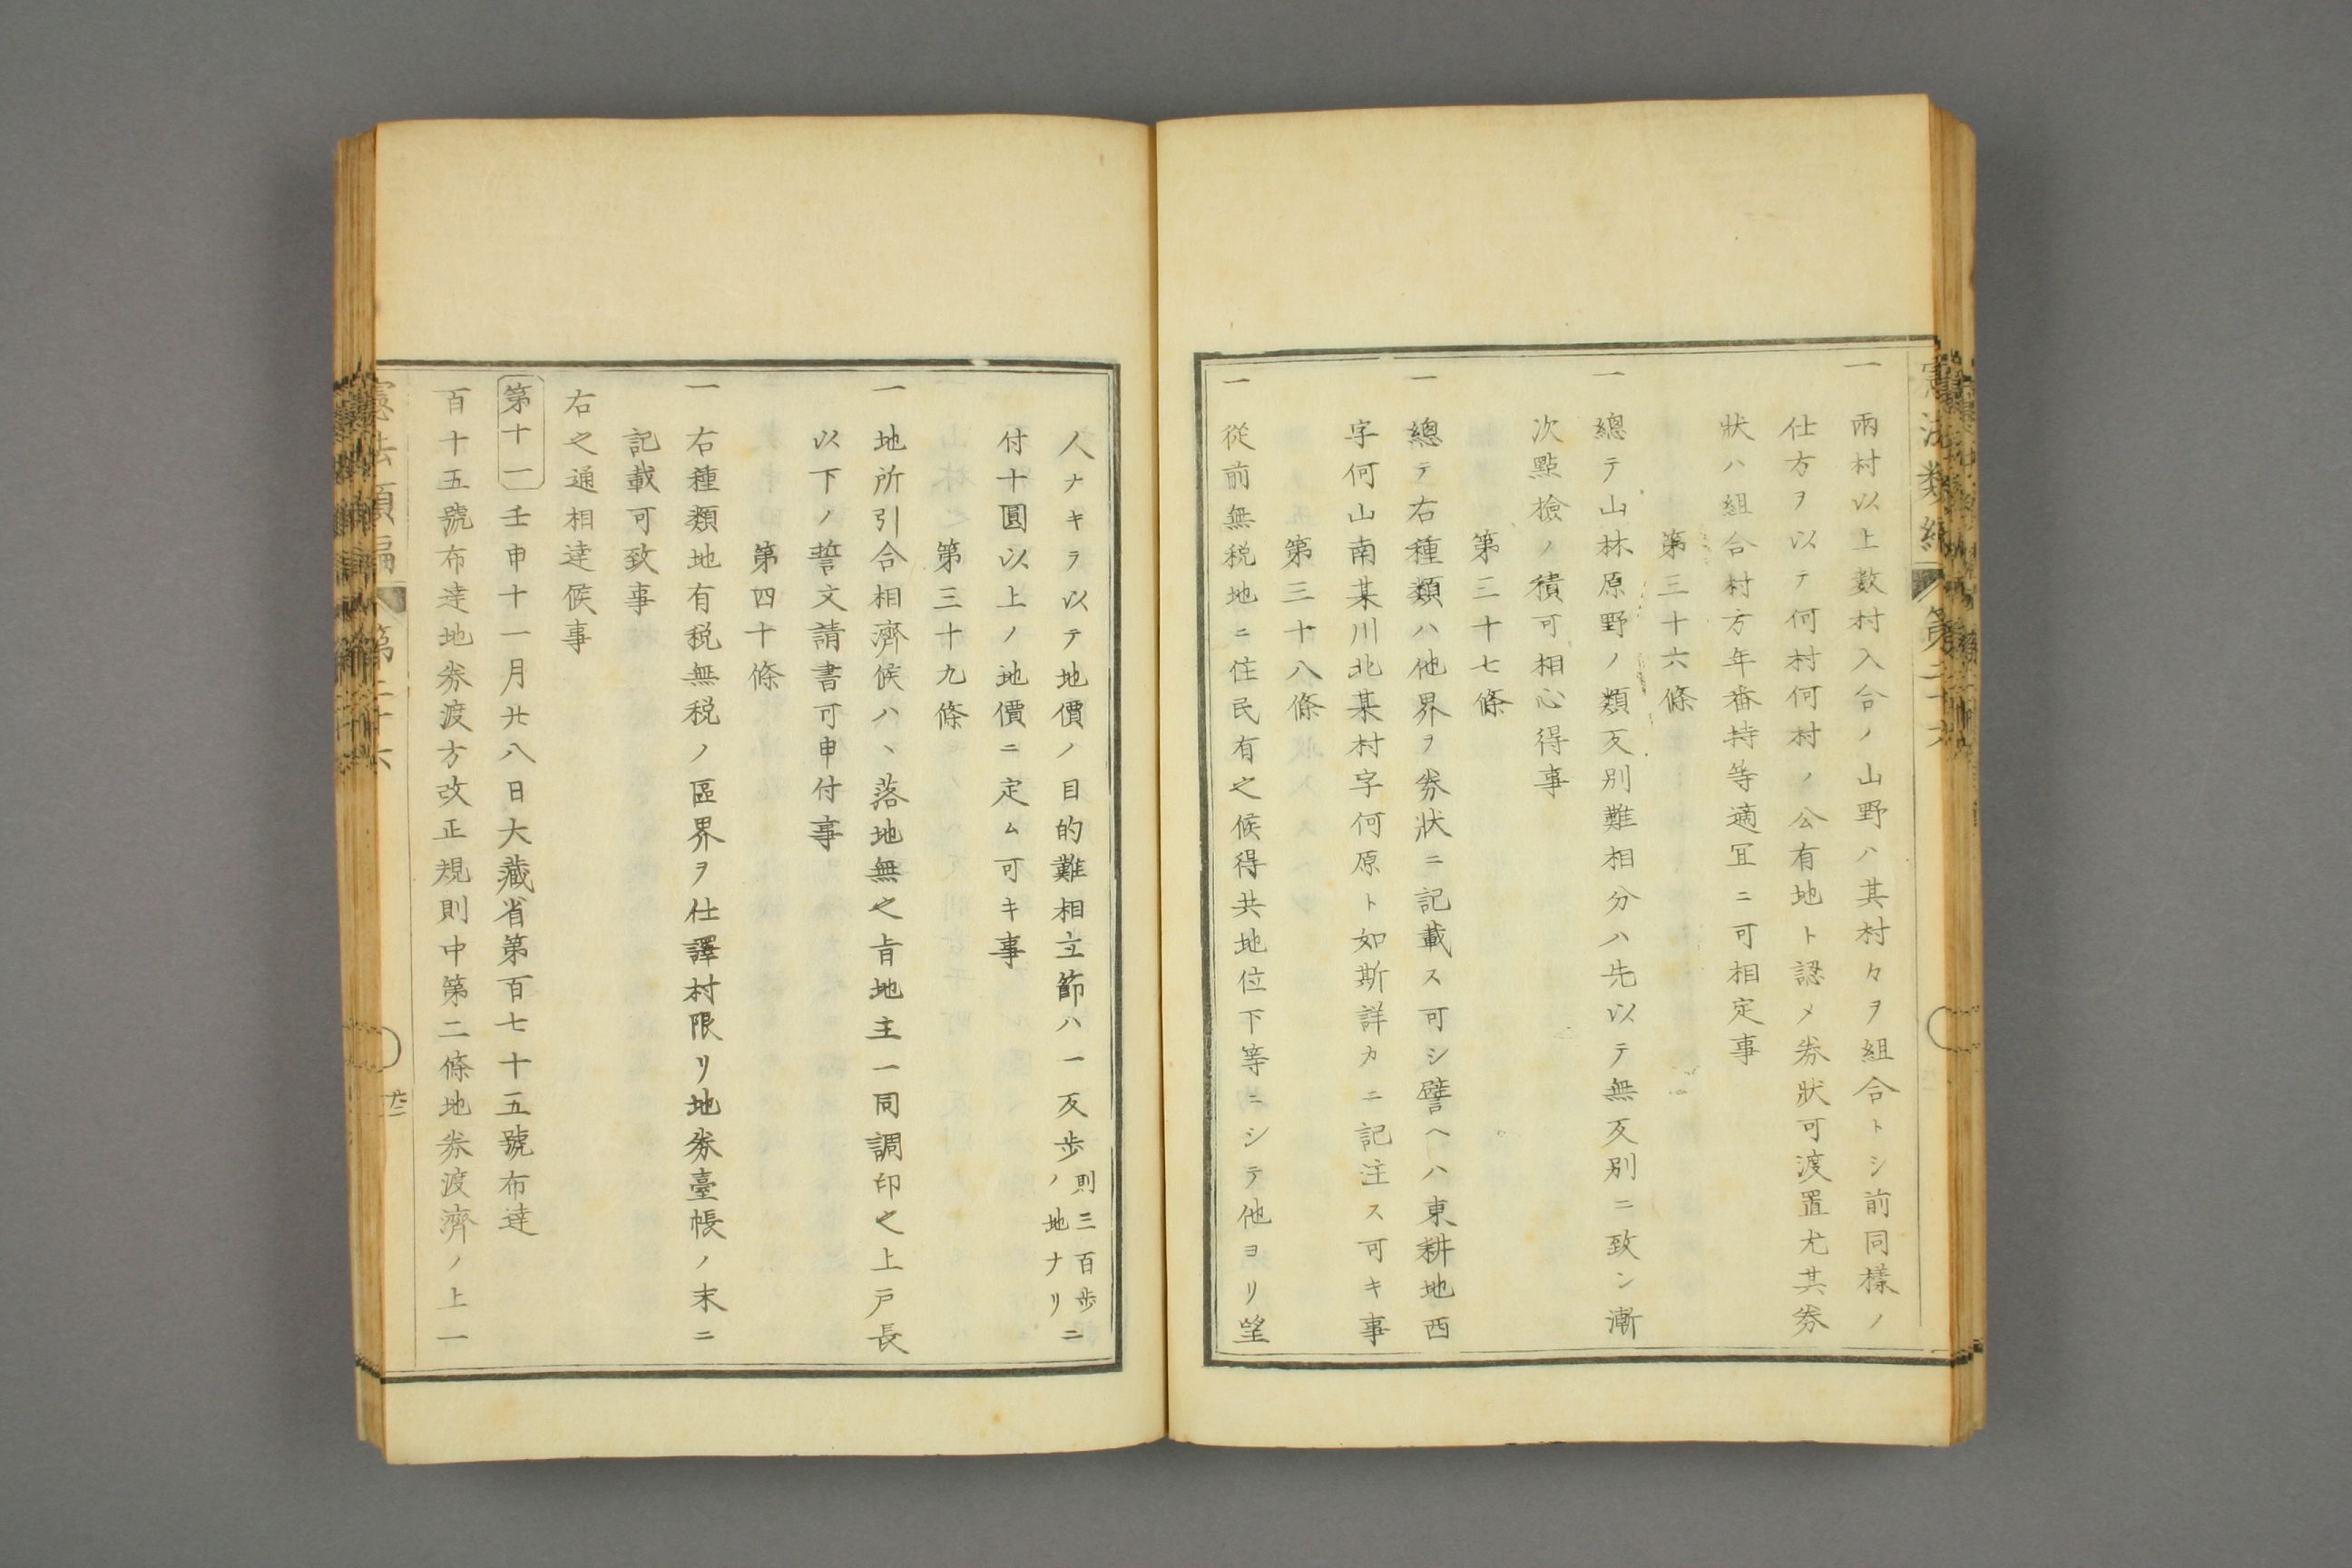 一兩村以上數村入合ノ山野ハ其村々ヲ組合トシ前同樣ノ
仕方ヲ以テ何村何村ノ公有地ト認メ券狀可渡置尤其券
狀ハ組合村方年番持等適冝ニ可相定事
第三十六條
一總テ山林原野ノ類反別難相分ハ先以テ無反別ニ致シ漸
次點檢ノ積可相心得事
第三十七條
一總テ右種類ハ他界ヲ券狀ニ記載ス可シ譬ヘハ東耕地西
字何山南某川北某村字何原ト如斯詳カニ記注ス可キ事
第三十八條
一從前無税地ニ住民有之候得共地位下等ニシテ他ヨリ望
人ナキヲ以テ地價ノ目的難相立節ハ一反歩則三百歩ノ地ナリニ
付十圓以上ノ地價ニ定ム可キ事
第三十九條
一地所引合相濟候ハヽ落地無之旨地主一同調印之上戸長
以下ノ誓文請書可申付事
第四十條
一右種類地有税無税ノ區界ヲ仕譯村限リ地券臺帳ノ末ニ
記載可致事
右之通相達候事
第十一壬申十一月廿八日大藏省第百七十五號布達
百十五號布達地券渡方改正規則中第二條地券渡濟ノ上一